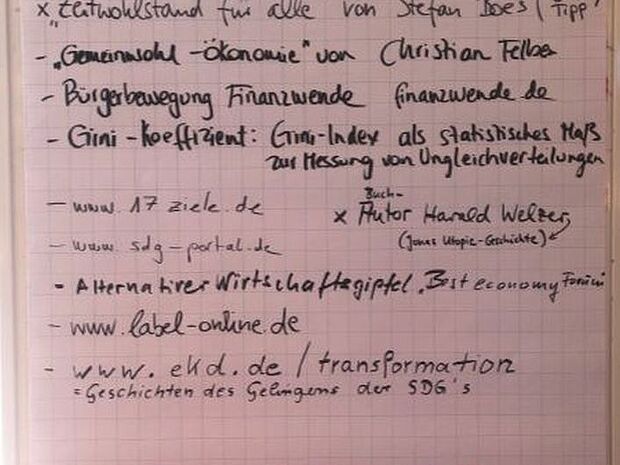 x "Zeitwohlstand für alle von Stefan Boes (Tipp
- "Gemeinwohl-Ökonomie" von Christian Felber
- Bürgerbewegung Finanzwende finanzwende.de
- Gini-Koeffizient: Gini-Index als statistisches Maß
zur Messung von Ungleichverteilungen
- www.17ziele.de
Buch-
x Autor Harald Welzer,
- www.sdg-portal.de
(Jonas Utopie-Geschichte)
- Alternativer Wirtschaftsgipfel "Best economy Forum
- www.label-online.de
- www.ekd.de/transformation
= Geschichten des Gelingens der SDG's